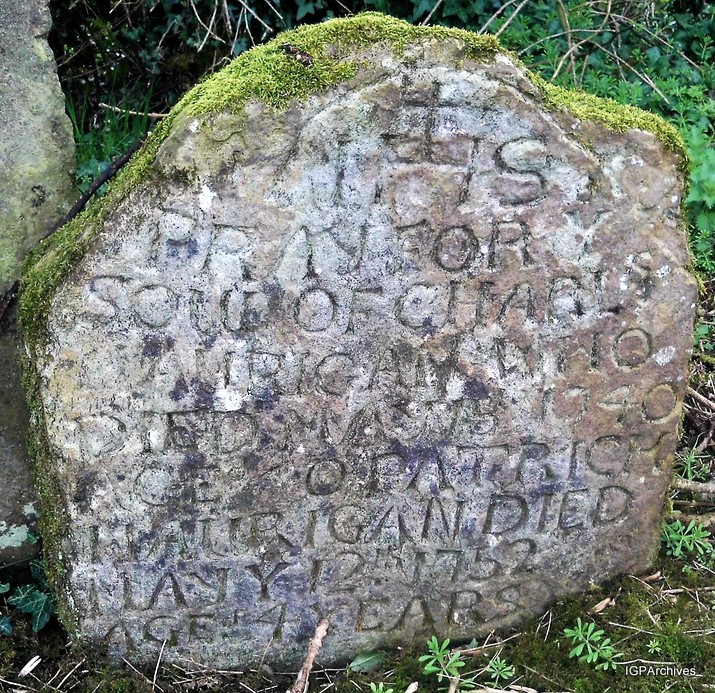 IHS
PRAY FOR Y
SOUL OF CHARLS
HAURIGAN WHO
DIED 1740
AGE PATRICK
HAURIGAN DIED
MAY Y 12TH 1752
AGE YEARS
IGPArchives